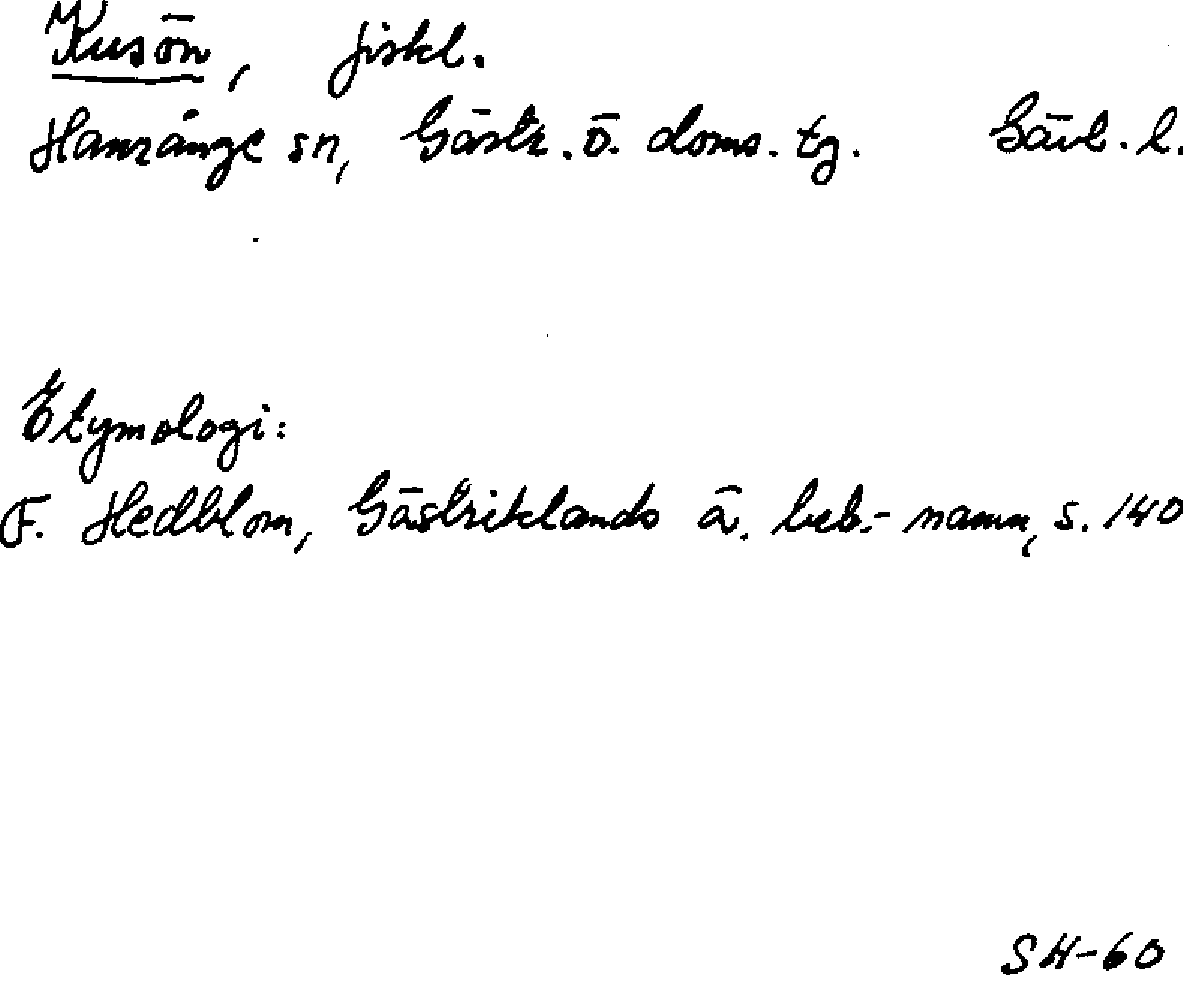 Kusön, fiskl.
Hamrånge sn, Gästr. ö. doms. tg. Gävl. l.
Etymologi:
F. Hedblom, Gästriklands ä. beb.-namn, s. 140
SH-60